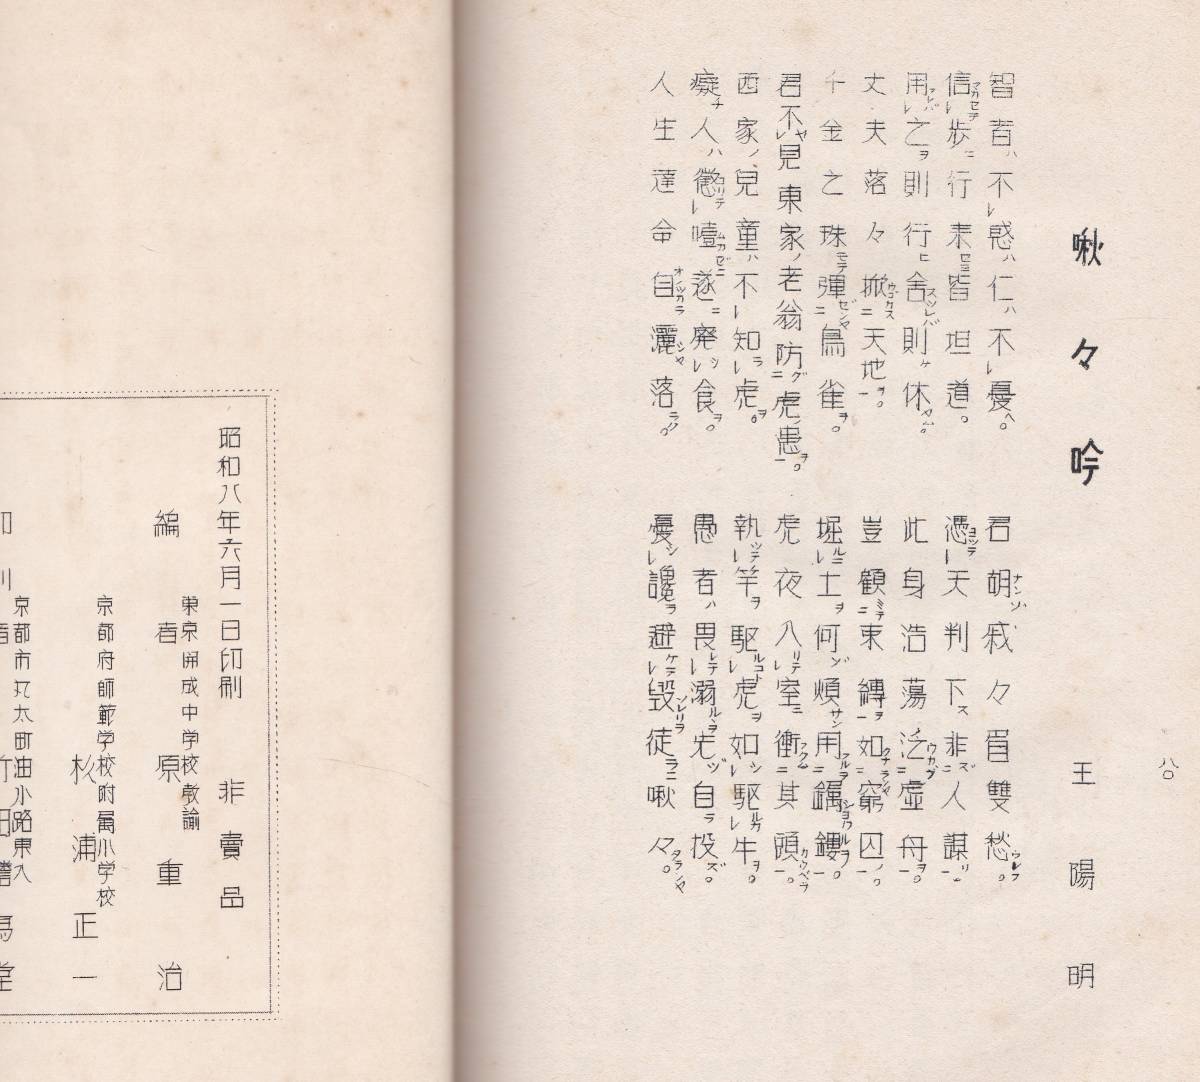 八〇
啾々吟
王陽明
智者不惑仁不憂。 君胡戚々眉雙愁。
信歩行来皆坦道。 憑天判下非人謀。
用之則行舍則休。 此身浩蕩泛虚舟。
丈夫落々掀天地。 豈顧束縛如窮囚。
千金之珠彈鳥雀。 堀土何煩用鐲鏤。
君不見東家老翁防虎患。 虎夜入室衝其頭。
西家兒童不知虎。 執竿驅虎如驅牛。
癡人懲噎遂廃食。 愚者畏溺先自投。
人生達命自灑落。 憂讒避毀徒啾々。
昭和八年六月一日印刷 非賣品
東京開成中学校教諭
編者 原重治
京都府師範学校附属小学校
杉浦正一
京都市丸太町油小路東入